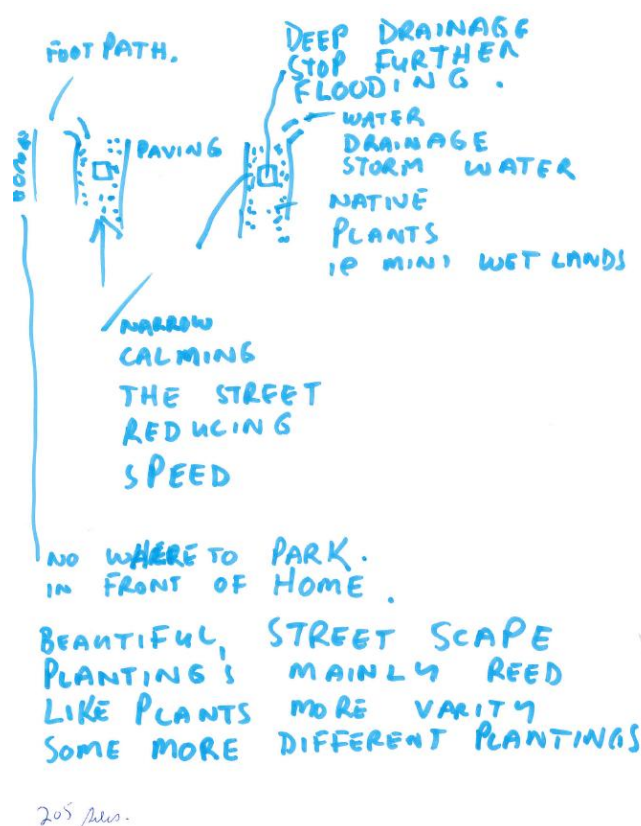 FOOTPATH.
DEEP DRAINAGE
STOP FURTHER
FLOODING.
PAVING
WATER
DRAINAGE
STORM WATER
NATIVE
PLANTS
ie MINI WETLANDS
NARROW
CALMING
THE STREET
REDUCING
SPEED
NO WHERE TO PARK.
IN FRONT OF HOME.
BEAUTIFUL, STREET SCAPE
PLANTING'S MAINLY REED
LIKE PLANTS MORE VARITY
SOME MORE DIFFERENT PLANTINGS
205